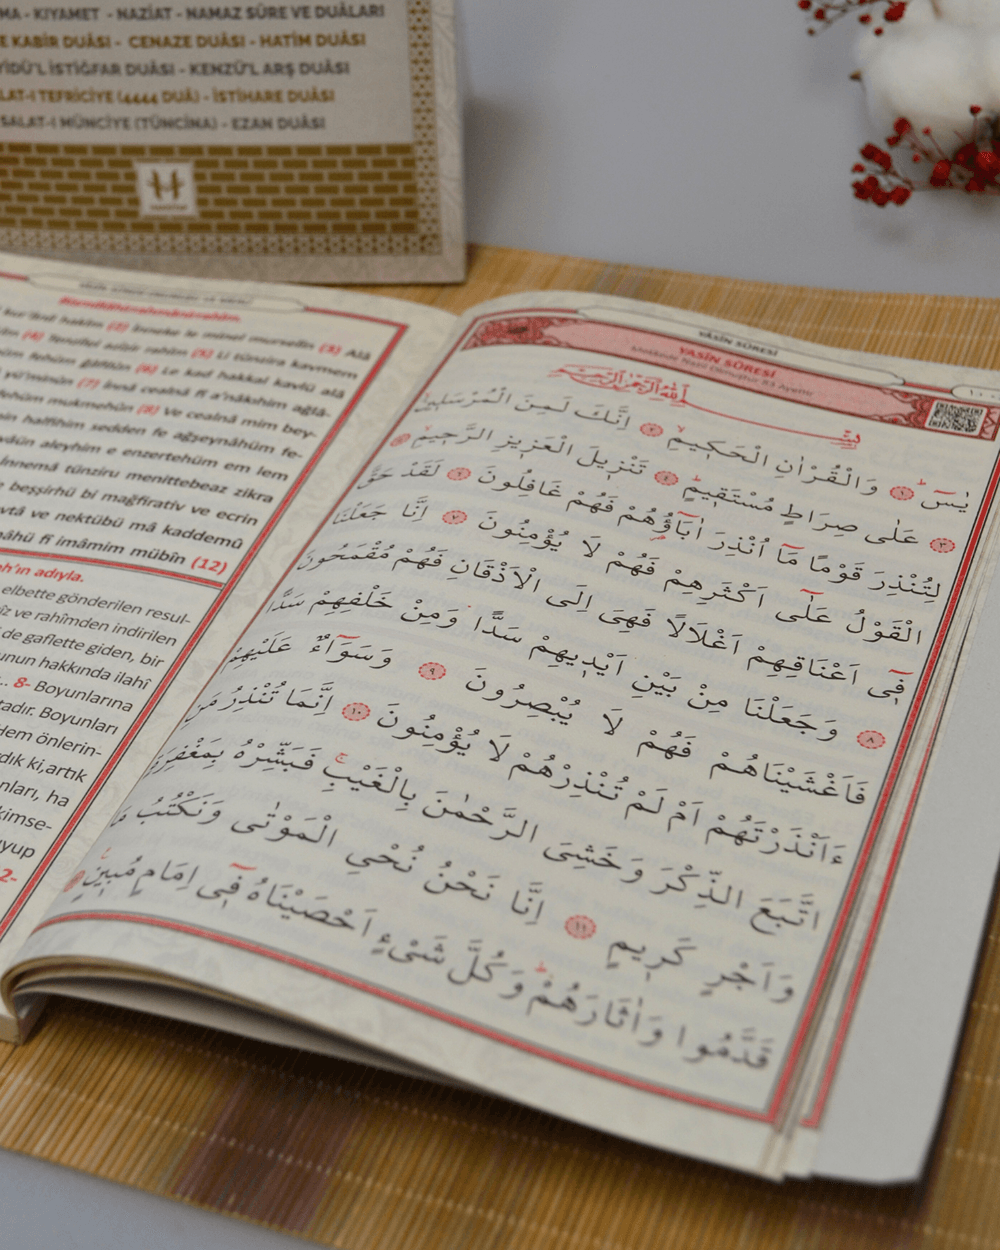 MA - KIYAMET - NAZİAT - NAMAZ SÛRE VE DUÂLARI
E KABİR DUÂSI - CENAZE DUÂSI - HATİM DUÂSI
YİDÜ'L İSTİĞFAR DUÂSI - KENZÜ'L ARŞ DUÂSI
LAT-I TEFRİCİYE (4444 DUÂ) - İSTİHARE DUÂSI
SALAT-I MÜNCİYE (TÜNCİNA) - EZAN DUÂSI
Bismillâhirrahmânirrahîm.
kur'ânil hakîm (2) İnneke le minel murselîn (3) Alâ
(4) Tenzîlel azîzir rahîm (5) Li tünzira kavmem
fehüm ğâfilûn (6) Le kad hakkal kavlü alâ
yü'minûn (7) İnnâ cealnâ fî a'nâkıhim ağlâ-
fehüm mukmehûn (8) Ve cealnâ mim bey-
halfihim sedden fe ağşeynâhüm fe-
aleyhim e enzertehüm em lem
İnnemâ tünziru menittebeaz zikra
beşşirhü bi mağfirativ ve ecrin
mevtâ ve nektübü mâ kaddemû
fî imâmim mübîn (12)
h'ın adıyla.
elbette gönderilen resul-
îz ve rahîmden indirilen
de gaflette giden, bir
unun hakkında ilahî
.. 8- Boyunlarına
tadır. Boyunları
dem önlerin-
dık ki, artık
nları, ha
kimse-
yup
2-
YÂSÎN SÛRESİ
YASİN SÛRESİ
Mekkede Nazil Olmuştur 83 Ayettir
بِسْمِ اللّٰهِ الرَّحْمٰنِ الرَّحِيمِ
يٰسٓ ۚ ﴿١﴾ وَالْقُرْاٰنِ الْحَكِيمِ ۙ ﴿٢﴾ اِنَّكَ لَمِنَ الْمُرْسَلِينَ
﴿٣﴾ عَلٰى صِرَاطٍ مُسْتَقِيمٍ ۜ ﴿٤﴾ تَنْزِيلَ الْعَزِيزِ الرَّحِيمِ ۙ ﴿٥﴾
لِتُنْذِرَ قَوْمًا مَٓا اُنْذِرَ اٰبَٓاؤُ۬هُمْ فَهُمْ غَافِلُونَ ﴿٦﴾ لَقَدْ حَقَّ
الْقَوْلُ عَلٰٓى اَكْثَرِهِمْ فَهُمْ لَا يُؤْمِنُونَ ﴿٧﴾ اِنَّا جَعَلْنَا
فِٓى اَعْنَاقِهِمْ اَغْلَالًا فَهِىَ اِلَى الْاَذْقَانِ فَهُمْ مُقْمَحُونَ
﴿٨﴾ وَجَعَلْنَا مِنْ بَيْنِ اَيْدِيهِمْ سَدًّا وَمِنْ خَلْفِهِمْ سَدًّا
فَاَغْشَيْنَاهُمْ فَهُمْ لَا يُبْصِرُونَ ﴿٩﴾ وَسَوَٓاءٌ عَلَيْهِمْ
ءَاَنْذَرْتَهُمْ اَمْ لَمْ تُنْذِرْهُمْ لَا يُؤْمِنُونَ ﴿١٠﴾ اِنَّمَا تُنْذِرُ مَنِ
اتَّبَعَ الذِّكْرَ وَخَشِىَ الرَّحْمٰنَ بِالْغَيْبِ ۚ فَبَشِّرْهُ بِمَغْفِرَةٍ
وَاَجْرٍ كَرِيمٍ ﴿١١﴾ اِنَّا نَحْنُ نُحْيِ الْمَوْتٰى وَنَكْتُبُ مَا
قَدَّمُوا وَاٰثَارَهُمْ ۜ وَكُلَّ شَىْءٍ اَحْصَيْنَاهُ فِٓى اِمَامٍ مُبِينٍ